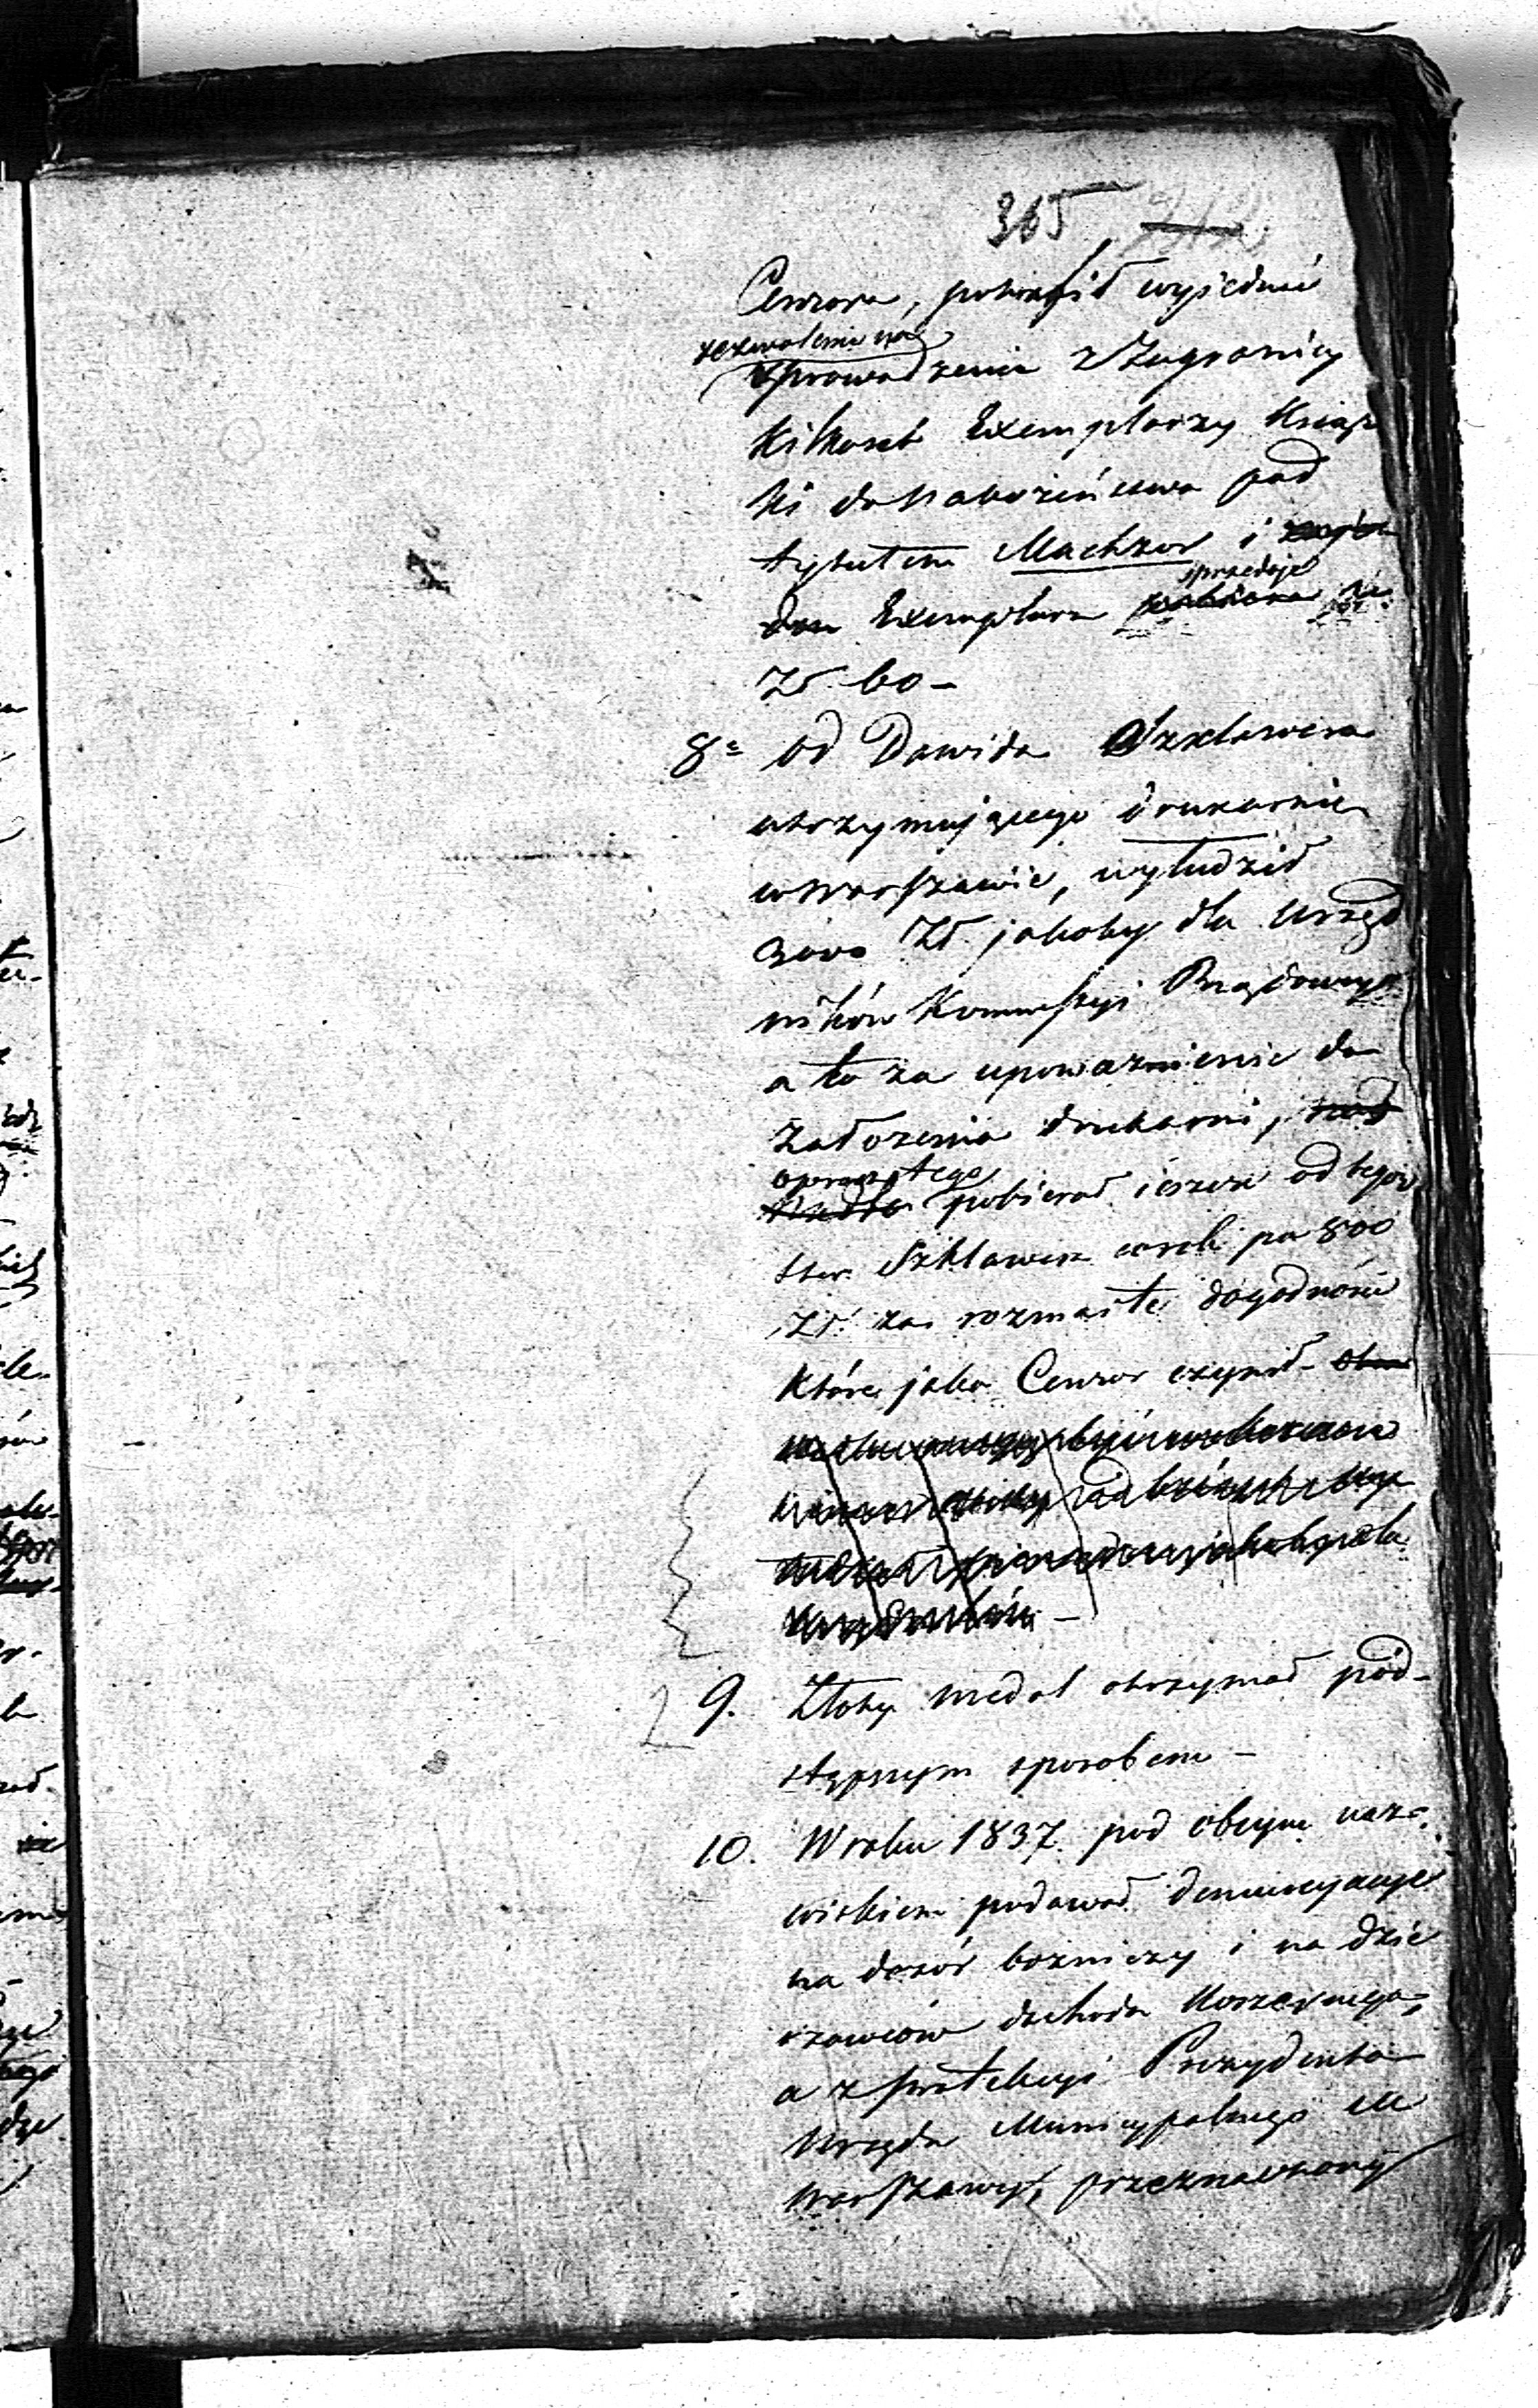 365 212
Cenzora, potrafił wyjednać
zezwolenie na
sprowadzenie z Zagranicy
kilkaset Exemplarzy Książ
ki do Nabożeństwa pod
tytułem Machzor i
sprzedaje
Exemplarz
Zł. 60 –
8= od Dawida Szklawera
utrzymującego drukarnię
w Warszawie, wyłudził
Zł. jakoby dla Urzęd
ników Kommissyi Rządowych
a to za upoważnienie do
założenia drukarni,
oprócz tego
pobierał ieszcze od tegoż
Szklawera co rok po 800
Zł. za rozmaite dogodności
które jako Cenzor czynił –
9. Złoty medal otrzymał pod-
stępnym sposobem –
10. W roku 1837. pod obcym naz-
wiskiem podawał denuncyacye
na dozór bożniczy i na dzier
żawców dochodu Koszernego,
a z protekcyi Prezydenta
Urzędu Municypalnego M
Warszawy, przeznaczony